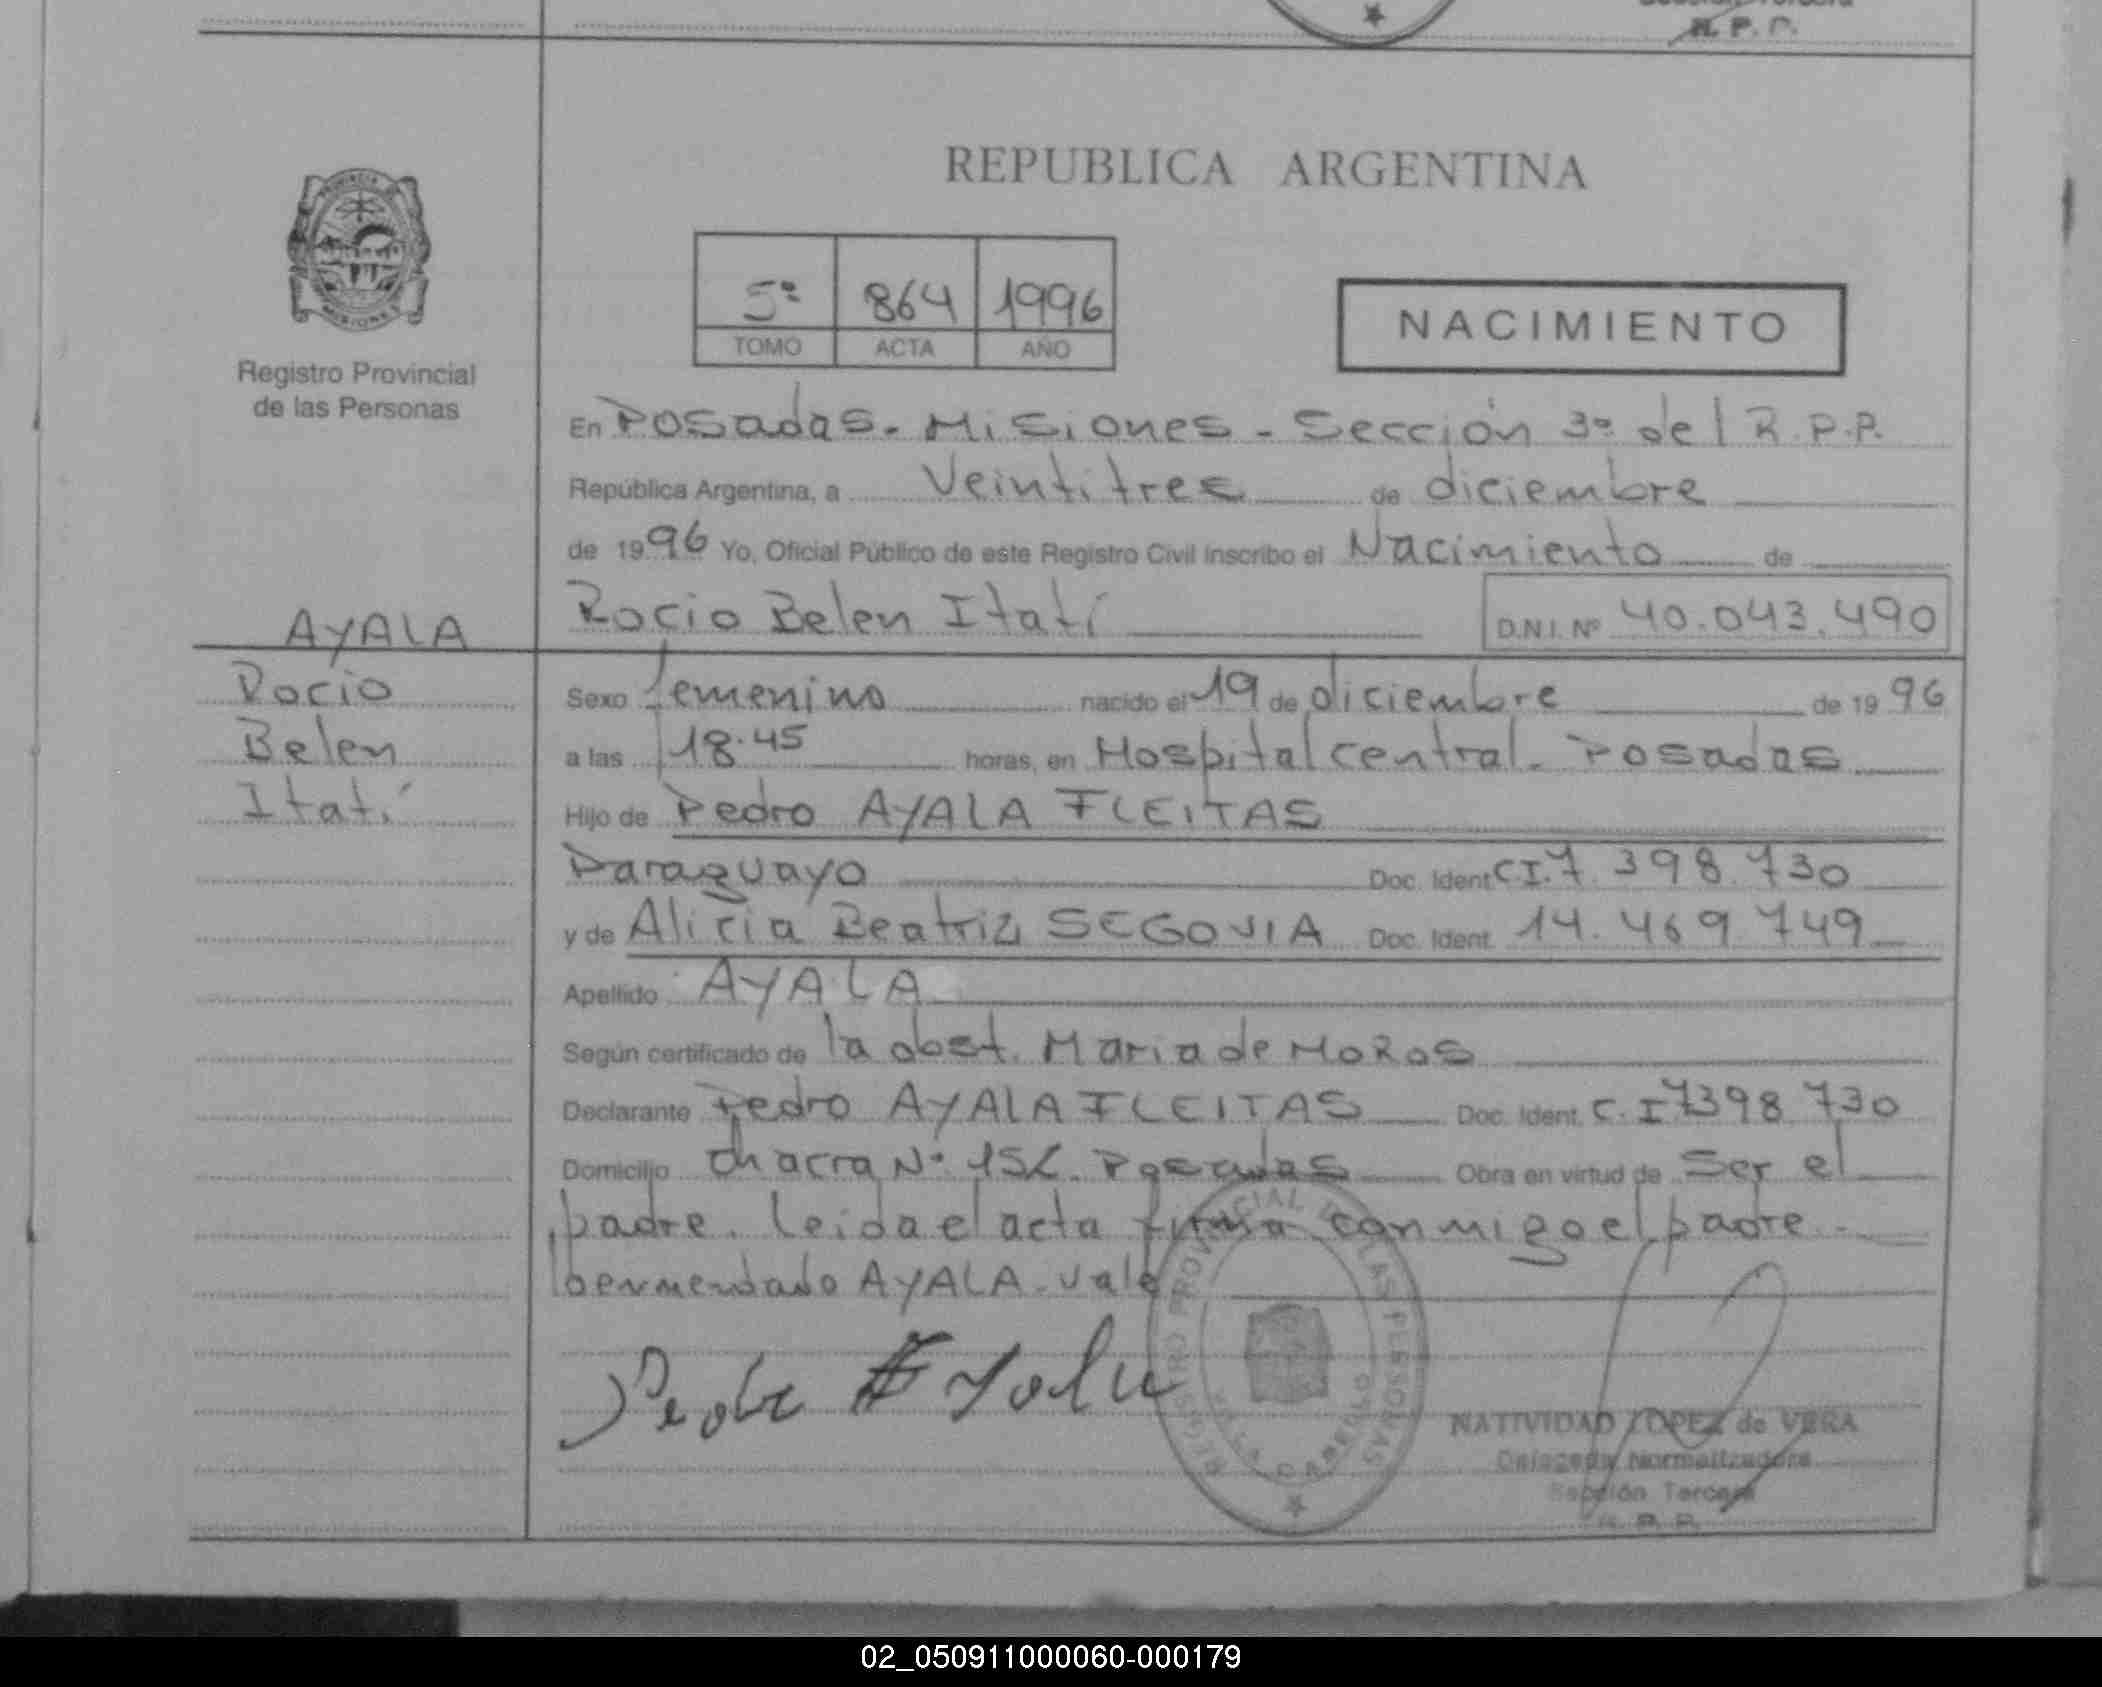 R. P. P.
PROVINCIA DE
MISIONES
Registro Provincial
de las Personas
REPUBLICA ARGENTINA
5º 864 1996
TOMO ACTA AÑO
NACIMIENTO
En Posadas. Misiones - Sección 3º del R.P.P.
República Argentina, a Veintitres de diciembre
de 1996 Yo, Oficial Público de este Registro Civil inscribo el Nacimiento de
Rocio Belen Itatí D.N.I. Nº 40.043.490
AYALA
Rocio
Belen
Itatí
Sexo femenino nacido el 19 de diciembre de 1996
a las 18.45 horas, en Hospital central. Posadas
Hijo de Pedro AYALA FLEITAS
Paraguayo Doc. Ident CI.7.398.730
y de Alicia Beatriz SEGOVIA Doc. Ident. 14.469.749
Apellido AYALA
Según certificado de la obst. Maria de MOROS
Declarante Pedro AYALA FLEITAS Doc. Ident. C.I 7398.730
Domicilio chacra Nº Posadas Obra en virtud de Ser el
padre. leida el acta firma conmigo el padre.-
lo enmendado AYALA-vale
Pedro Ayala
REGISTRO PROVINCIAL DE LAS PERSONAS
NATIVIDAD LOPEZ de VERA
Delegada Normalizadora
Sección Tercera
R. P. P.
02_050911000060-000179